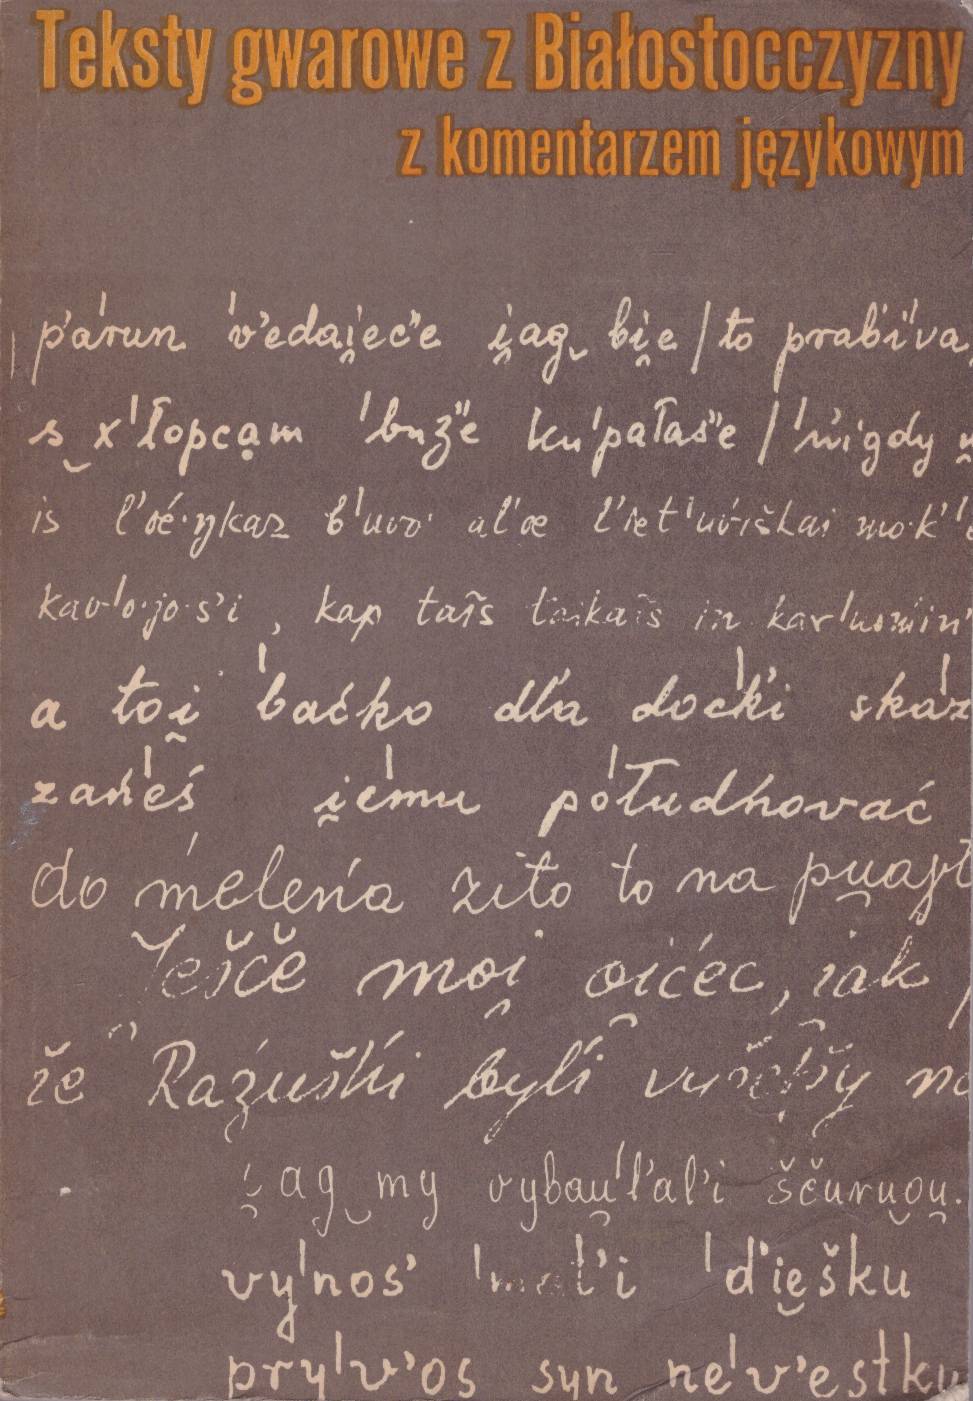 Teksty gwarowe z Białostocczyzny
z komentarzem językowym
p'árun v'edai̯ec'e i̯ag‿ bi̯e / to prab'i'va
s‿ x'łopcam 'buʒ'e ku'pałas'e / 'ńigdy
is l'óé·ŋkaz b'uvo· al'œ l'iet'uv'iškai mo·k'
kav'lo·jo·s'i, kap taĩs in
a toi̯ 'baćko dla doćki skáz
zańéś i̯emu 'połudnovać
do meleńa žito to na pu̯ayt
Ješče moi̯ oićec, iak
że Razuśḱi byĺi
i̯ag‿ my vybau̯'l'al'i ščurụou̯.
vy'nos' 'mat'i 'd'ie̯šku
pry'v'os syn ne'v'estku